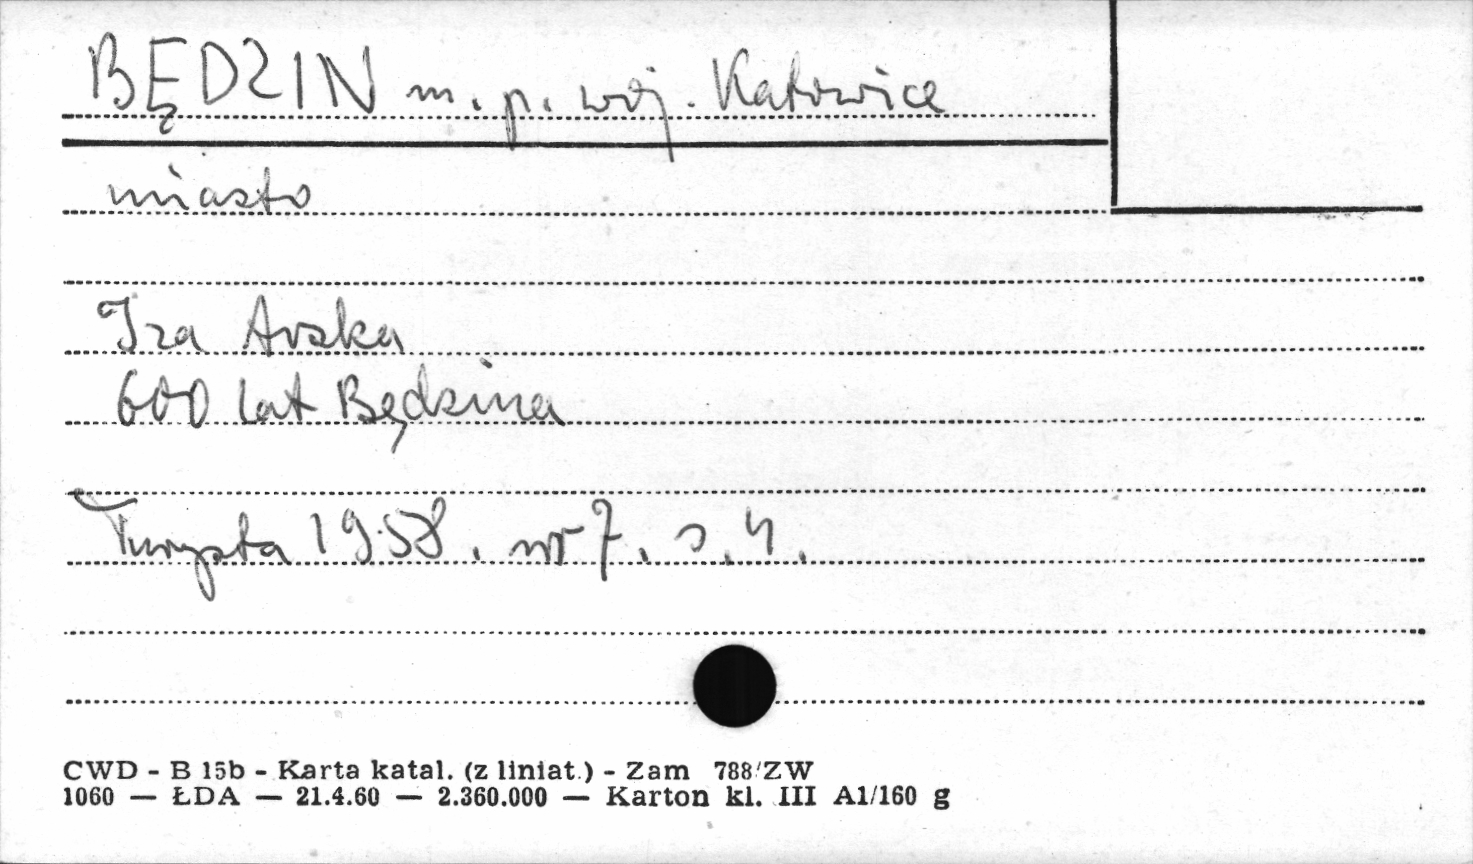 BĘDZIN m. p. woj. Katowice
miasto
Iza Arska
600 lat Będzina
Turysta 1958. nr 7. s. 4.
CWD - B 15b - Karta katal. (z liniat.) - Zam 788/ZW
1060 — ŁDA — 21.4.60 — 2.360.000 — Karton kl. III A1/160 g